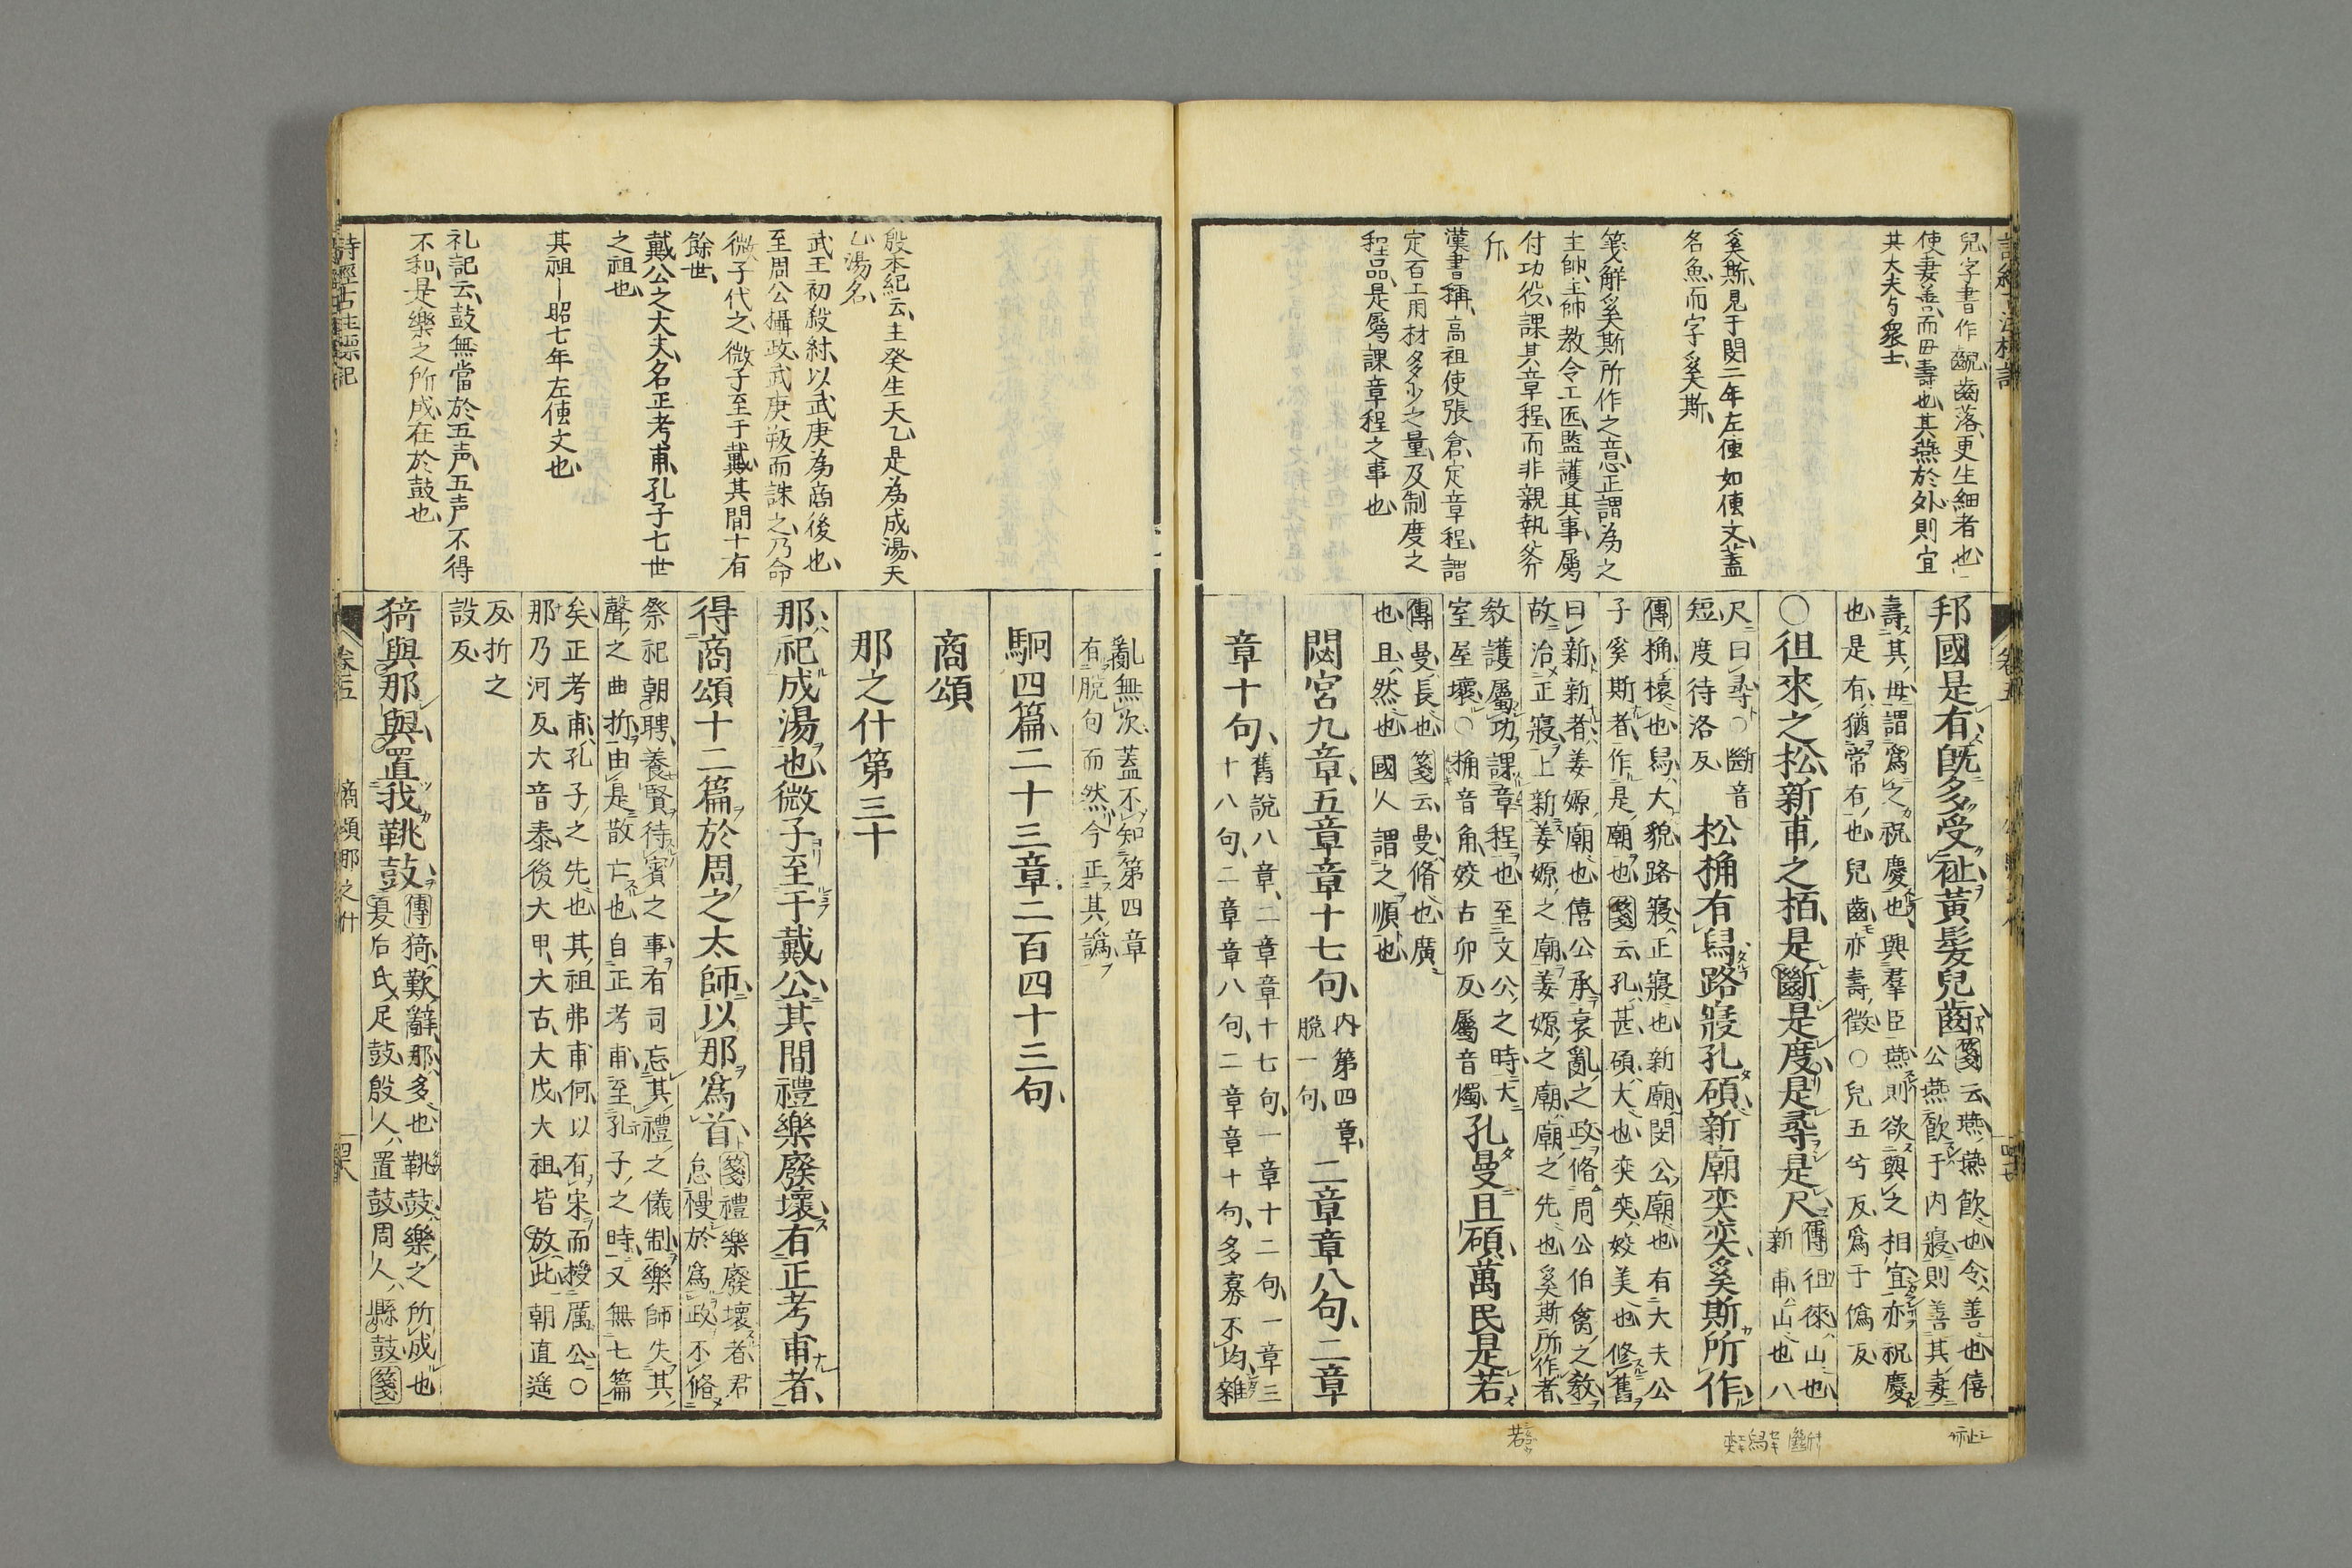 兒字書作齯齒落更生細者也
使妻善而毋壽也其燕於外則宜
其大夫与衆士
奚斯見于閔二年左傳如傳文蓋
名魚而字奚斯
箋解奚斯所作之意正謂為之
主帥主帥教令工匠監護其事屬
付功役課其章程而非親執斧
斤
漢書稱高祖使張倉定章程謂
定百工用材多少之量及制度之
程品是屬課章程之事也
邦國是有既多受祉黃髮兒齒
箋云燕燕飲也令善也僖
公燕飲于内寢則善其妻
壽其母謂爲之祝慶也與羣臣燕則欲與之相宜亦祝慶
也是有猶常有也兒齒亦壽徵○兒五兮反爲于僞反
○徂來之松新甫之栢是斷是度是尋是尺
傳徂徠山也
新甫山也八
尺曰尋○斷音
短度待洛反
松桷有舄路寢孔碩新廟奕奕奚斯所作
傳桷榱也舄大貌路寢正寢也新廟閔公廟也有大夫公
子奚斯者作是廟也箋云孔甚碩大也奕奕姣美也修舊
曰新新者姜嫄廟也僖公承衰亂之政脩周公伯禽之敎
故治正寢上新姜嫄之廟姜嫄之廟廟之先也奚斯所作者
敎護屬功課章程也至文公之時大
室屋壞○桷音角姣古卯反屬音燭
孔曼且碩萬民是若
傳曼長也箋云曼脩也廣
也且然也國人謂之順也
閟宮九章五章章十七句
内第四章
脫一句
二章章八句二章
章十句
舊說八章二章章十七句一章十二句一章三
十八句二章章八句二章章十句多寡不均雜
亂無次蓋不知第四章
有脫句而然今正其譌
駉四篇二十三章二百四十三句
商頌
那之什第三十
殷本紀云主癸生天乙是為成湯天
乙湯名
武王初殺紂以武庚為商後也
至周公攝政武庚叛而誅之乃命
微子代之微子至于戴其間十有
餘世
戴公之大夫名正考甫孔子七世
之祖也
其祖—昭七年左傳文也
礼記云鼓無當於五声五声不得
不和是樂之所成在於鼓也
那祀成湯也微子至于戴公其間禮樂廢壞有正考甫者
得商頌十二篇於周之太師以那爲首
箋禮樂廢壞者君
怠慢於爲政不脩
祭祀朝聘養賢待賓之事有司忘其禮之儀制樂師失其
聲之曲折由是散亡也自正考甫至孔子之時又無七篇
矣正考甫孔子之先也其祖弗甫何以有宋而授厲公○
那乃河反大音泰後大甲大古大戊大祖皆放此朝直遥
反折之
設反
猗與那與置我鞉鼓
傳猗歎辭那多也鞉鼓樂之所成也
夏后氏足鼓殷人置鼓周人縣鼓箋
詩經古註標記
卷五
商頌那之什
四八